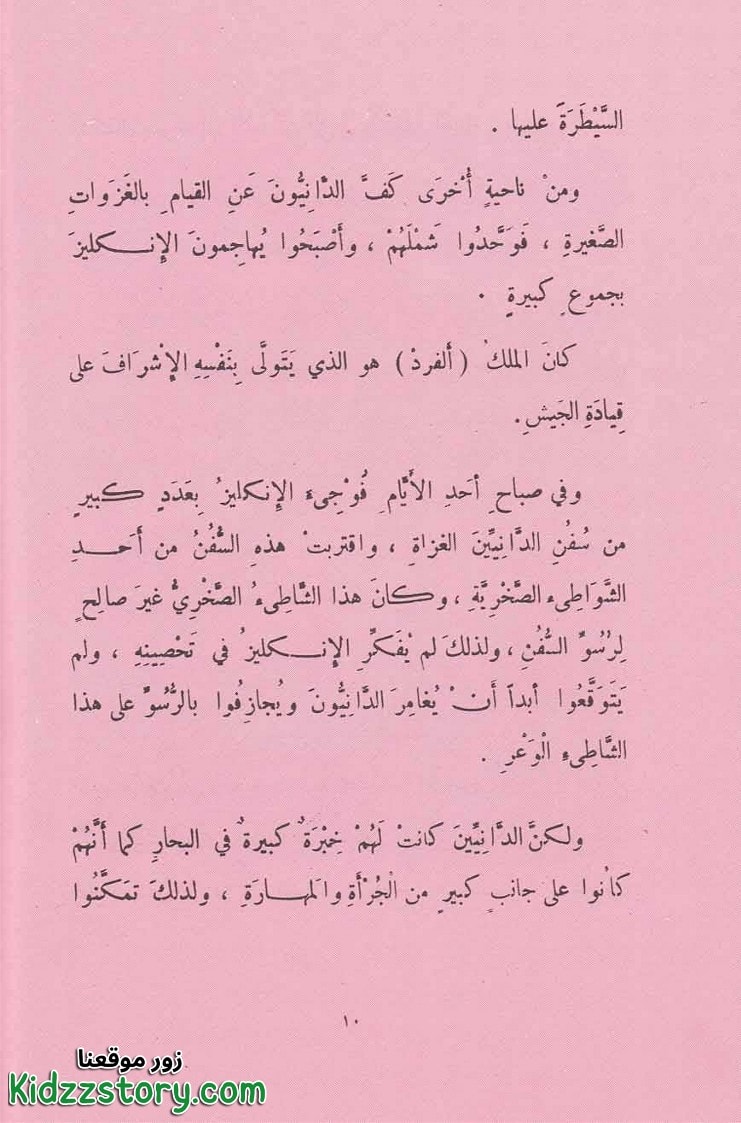 السَّيْطَرَةَ عليها .
ومنْ ناحيةٍ أُخْرَى كَفَّ الدَّانِيُّونَ عَنِ القيامِ بالغَزَواتِ
الصَّغيرةِ ، فَوَحَّدُوا شَمْلَهُمْ ، وأَصْبَحُوا يُهاجِمونَ الإِنكليزَ
بجموعٍ كبيرةٍ .
كانَ الملكُ ( ألفردْ ) هو الذي يَتَولَّى بِنَفْسِهِ الإِشْرَافَ على
قِيادَةِ الجَيشِ .
وفي صباحِ أحَدِ الأَيَّامِ فُوْجِىءَ الإِنكليزُ بِعَدَدٍ كبيرٍ
من سُفُنِ الدَّانِيِّينَ الغزاةِ ، واقتربتْ هذهِ السُّفُنُ من أَحَدِ
الشَّوَاطِىءِ الصَّخْرِيَّةِ ، وكانَ هذا الشَّاطِىءُ الصَّخْرِيُّ غيرَ صالِحٍ
لِرُسُوِّ السُّفُنِ ، ولذلكَ لم يُفَكِّرِ الإِنكليزُ في تَحْصِينِهِ ، ولم
يَتَوَقَّعُوا أبداً أَنْ يُغامِرَ الدَّانِيُّونَ ويُجازِفُوا بالرُّسُوِّ على هذا
الشَّاطِىءِ الْوَعْرِ .
ولكنَّ الدَّانِيِّينَ كانتْ لَهُمْ خِبْرَةٌ كبيرةٌ في البحارِ كما أَنَّهُمْ
كانُوا على جانبٍ كبيرٍ من الْجُرْأَةِ والْمهارَةِ ، ولذلكَ تمَكَّنُوا
١٠
زور موقعنا
Kidzzstory.com